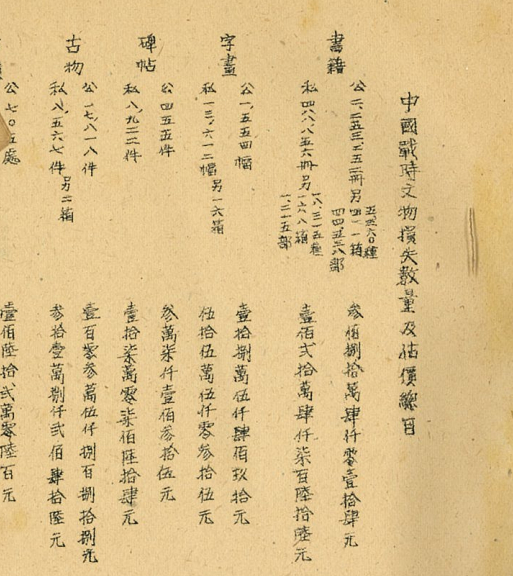 中國戰時文物損失數量及估價總目
書籍
公 二、二五三、二五二冊另
五三六〇種
四一一箱
四四五三八部
叁佰捌拾萬肆仟零壹拾肆元
私 四八八、八五六冊另
一八、三一五種
一六八箱
一、二一五部
壹佰貳拾萬肆仟柒百陸拾陸元
字畫
公 一、五五四幅
壹拾捌萬伍仟肆佰玖拾元
私 一三、六一二幅另一六箱
伍拾伍萬伍仟零叁拾伍元
碑帖
公 四五五件
叁萬柒仟壹佰叁拾伍元
私 八、九二二件
壹拾柒萬零柒佰陸拾肆元
古物
公 一七、八一八件
壹百零叁萬伍仟捌百捌拾捌元
私 八、五六七件另二箱
叁拾壹萬捌仟貳佰肆拾陸元
公 七〇五處
壹佰陸拾貳萬零陸百元